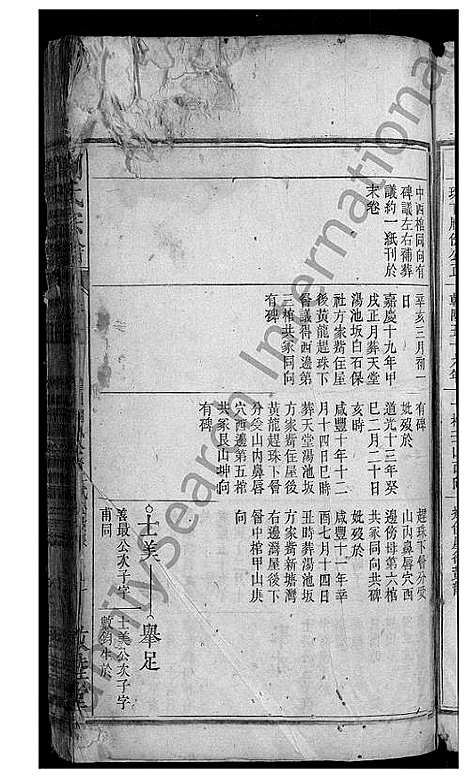 中西棺同向有
碑議左右補葬
議約一紙刊於
末卷
辛亥三月初一
日
嘉慶十九年甲
戌正月葬天堂
湯池坂白石保
社方家嘴庄屋
後黃龍趕珠下
脣議得西邊第
三棺共冢同向
有碑
有碑
妣歿於
道光十三年癸
巳二月二十日
亥時
咸豐十年十二
月十四日巳時
葬天堂湯池坂
方家嘴庄屋後
黃龍趕珠下脣
分受山内鼻唇
穴西邊第五棺
共冢艮山坤向
有碑
趕珠下脣分受
山内鼻唇穴西
邊傍母第六棺
共冢同向共碑
妣歿於
咸豐十一年辛
酉七月十四日
丑時葬湯池坂
方家嘴新塘灣
右邊灣屋後下
脣中棺甲山庚
向
士美
善最公次子字
甫同
舉足
士美公次子字
數鈞生於
FamilySearch International